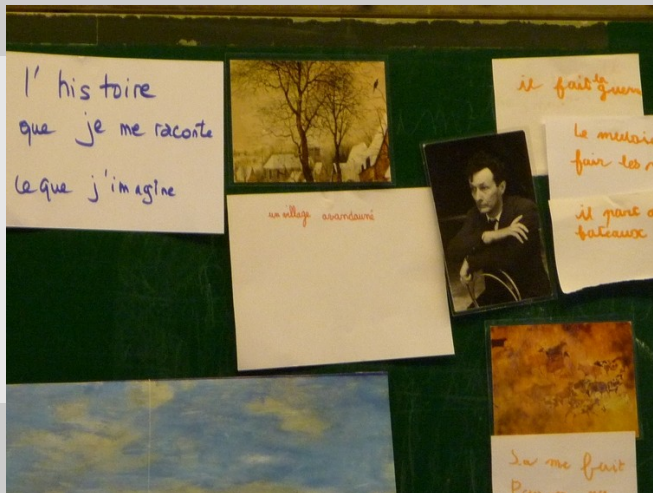 l'histoire
que je me raconte
ce que j'imagine
un village avandauné
il fait la guerre
Le
fair les
il part
bateaux
Sa me fait